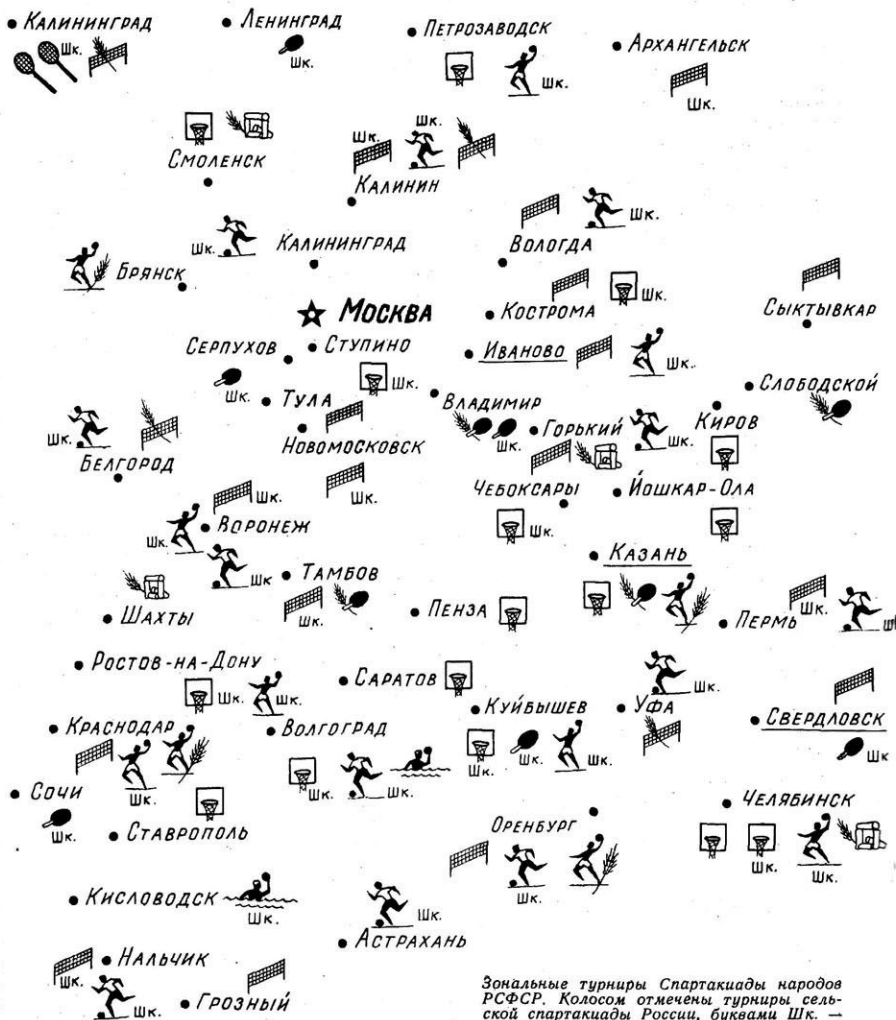 КАЛИНИНГРАД
Шк.
ЛЕНИНГРАД
Шк.
ПЕТРОЗАВОДСК
Шк.
АРХАНГЕЛЬСК
Шк.
СМОЛЕНСК
Шк.
Шк.
КАЛИНИН
Шк.
КАЛИНИНГРАД
Шк.
ВОЛОГДА
БРЯНСК
МОСКВА
КОСТРОМА
Шк.
СЫКТЫВКАР
СЕРПУХОВ
Шк.
СТУПИНО
Шк.
ИВАНОВО
Шк.
СЛОБОДСКОЙ
ТУЛА
ВЛАДИМИР
Шк.
ГОРЬКИЙ
Шк.
КИРОВ
Шк.
БЕЛГОРОД
НОВОМОСКОВСК
Шк.
ЧЕБОКСАРЫ
Шк.
ЙОШКАР-ОЛА
Шк.
Шк.
ВОРОНЕЖ
Шк
КАЗАНЬ
ТАМБОВ
Шк.
ШАХТЫ
ПЕНЗА
ПЕРМЬ
Шк.
шк
РОСТОВ-НА-ДОНУ
Шк.
Шк.
САРАТОВ
КУЙБЫШЕВ
Шк.
Шк.
Шк.
УФА
Шк.
СВЕРДЛОВСК
Шк
КРАСНОДАР
Шк.
ВОЛГОГРАД
Шк.
Шк.
СОЧИ
Шк.
СТАВРОПОЛЬ
ОРЕНБУРГ
Шк.
ЧЕЛЯБИНСК
Шк.
Шк.
КИСЛОВОДСК
Шк.
Шк.
АСТРАХАНЬ
НАЛЬЧИК
Шк.
Шк.
ГРОЗНЫЙ
Зональные турниры Спартакиады народов
РСФСР. Колосом отмечены турниры сель-
ской спартакиады России, буквами Шк. —